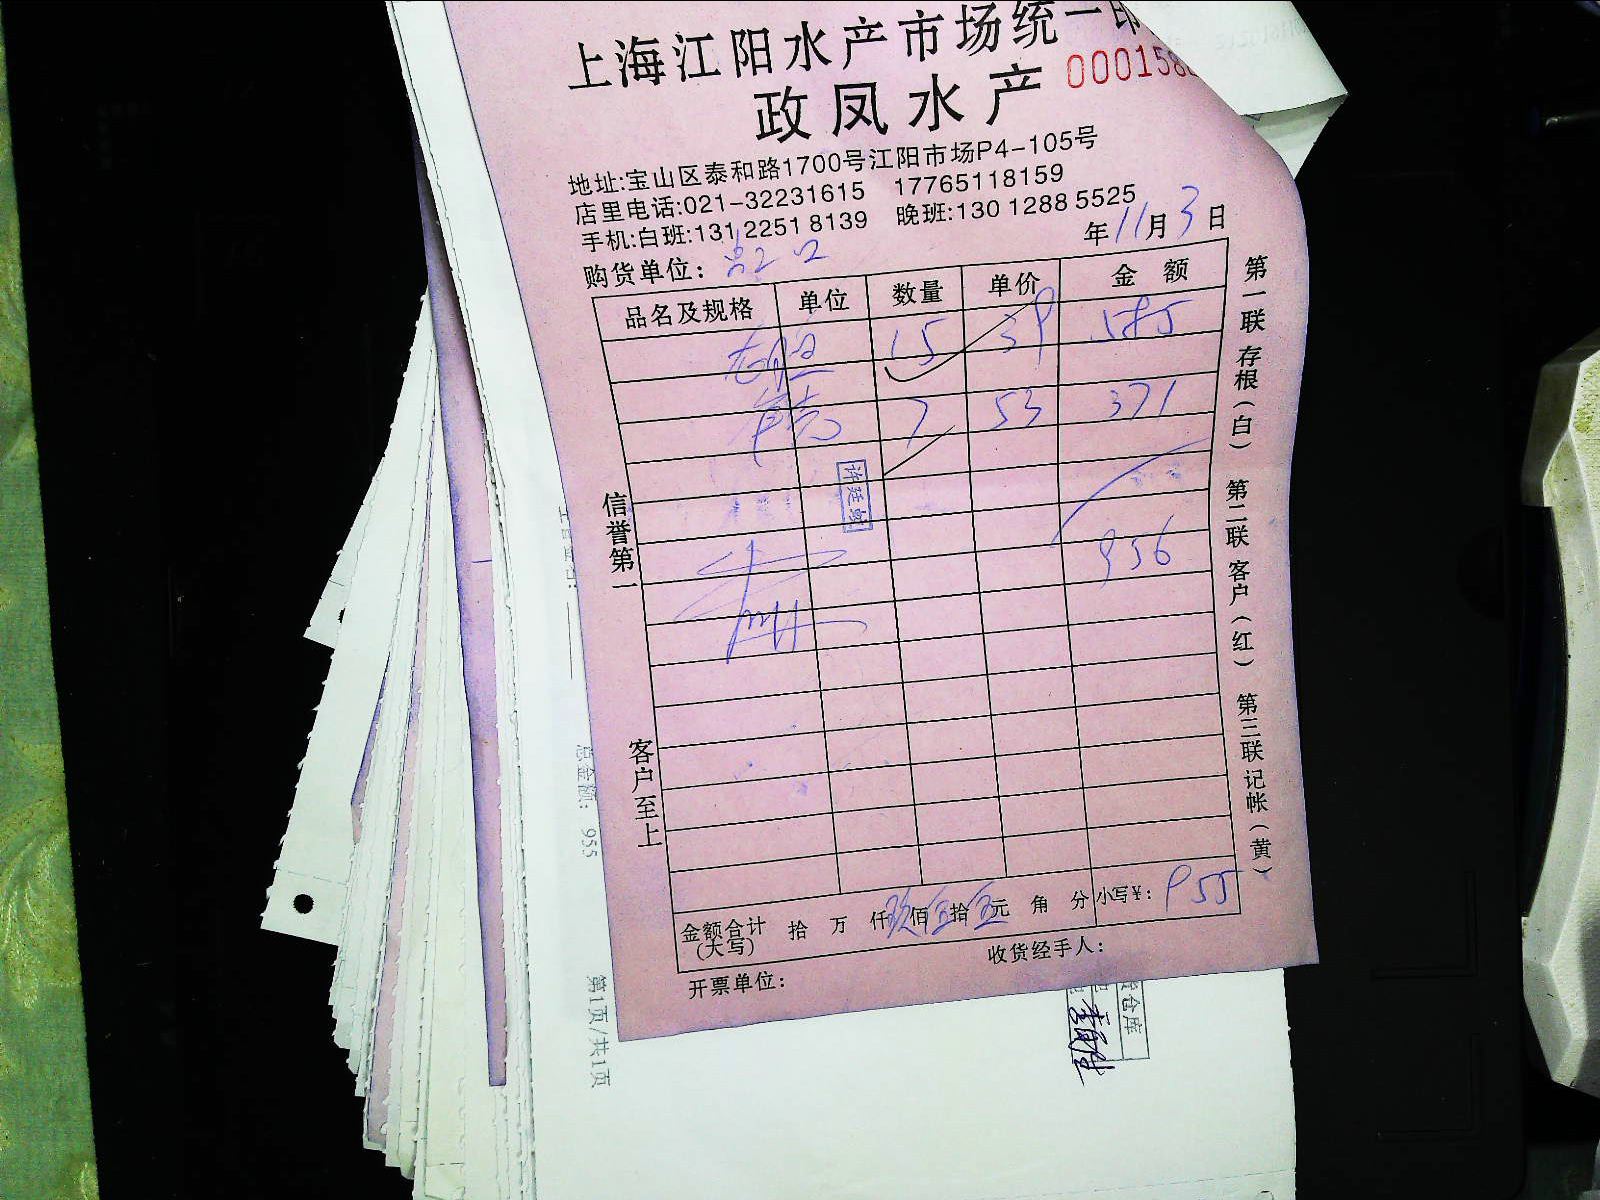 上海江阳水产市场统一印
政凤水产 000158
地址:宝山区泰和路1700号江阳市场P4-105号
店里电话:021-32231615 17765118159
手机:白班:131 2251 8139 晚班:130 1288 5525
年11月3日
购货单位:
品名及规格 单位 数量 单价 金额
15 39 585
7 53 371
956
金额合计(大写) 拾 万 仟玖佰伍拾伍元 角 分 小写¥: 955
开票单位: 收货经手人:
信誉第一
客户至上
第一联存根(白) 第二联客户(红) 第三联记帐(黄)
许廷
总金额: 955
第1页/共1页
仓库